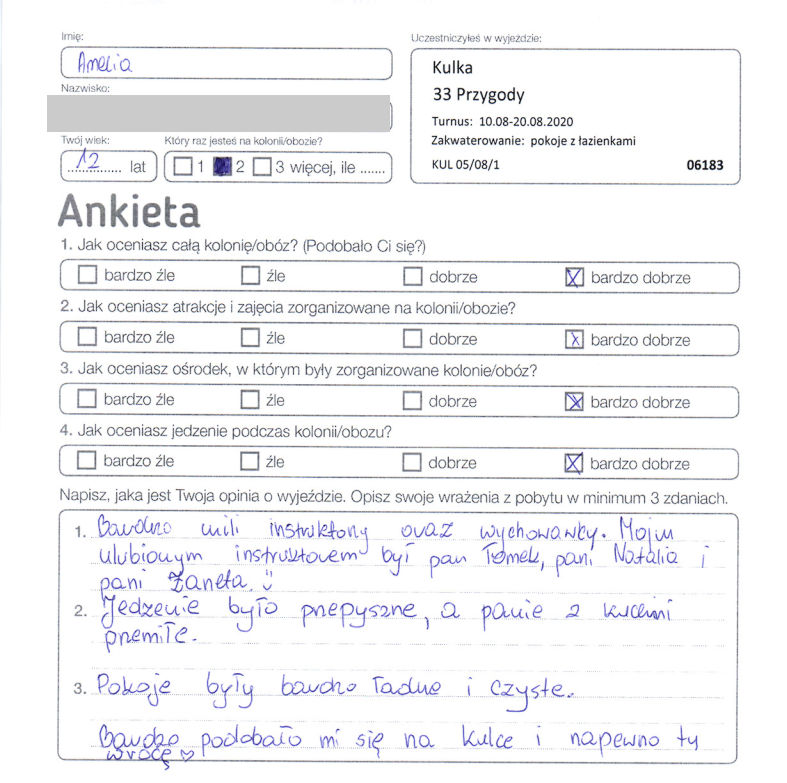 Imię:
Amelia
Nazwisko:
Twój wiek:
12 lat
Który raz jesteś na kolonii/obozie?
1 2 3 więcej, ile .......
Uczestniczyłeś w wyjeździe:
Kulka
33 Przygody
Turnus: 10.08-20.08.2020
Zakwaterowanie: pokoje z łazienkami
KUL 05/08/1 06183
Ankieta
1. Jak oceniasz całą kolonię/obóz? (Podobało Ci się?)
bardzo źle źle dobrze X bardzo dobrze
2. Jak oceniasz atrakcje i zajęcia zorganizowane na kolonii/obozie?
bardzo źle źle dobrze X bardzo dobrze
3. Jak oceniasz ośrodek, w którym były zorganizowane kolonie/obóz?
bardzo źle źle dobrze X bardzo dobrze
4. Jak oceniasz jedzenie podczas kolonii/obozu?
bardzo źle źle dobrze X bardzo dobrze
Napisz, jaka jest Twoja opinia o wyjeździe. Opisz swoje wrażenia z pobytu w minimum 3 zdaniach.
1. Bardzo mili instruktorzy oraz wychowawcy. Moim
ulubionym instruktorem był pan Tomek, pani Natalia i
pani Żaneta. :)
2. Jedzenie było przepyszne, a panie z kuchni
przemiłe.
3. Pokoje były bardzo ładne i czyste.
Bardzo podobało mi się na Kulce i napewno tu
wrócę ♡